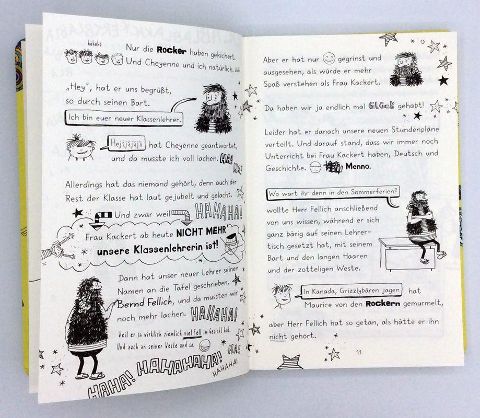 hihihi
Nur die Rocker haben gekichert.
Und Cheyenne und ich natürlich.
„Hey“, hat er uns begrüßt,
so durch seinen Bart.
Ich bin euer neuer Klassenlehrer.
Heyjajajaja hat Cheyenne geantwortet,
und da musste ich voll lachen. HAHA!
Allerdings hat das niemand gehört, denn auch der
Rest der Klasse hat laut gejubelt und gelacht.
HAHAHA!
Und zwar weil
Frau Kackert ab heute NICHT MEHR
unsere Klassenlehrerin ist!
Dann hat unser neuer Lehrer seinen
Namen an die Tafel geschrieben.
Bernd Fellich, und da mussten wir
noch mehr lachen. HAHAHA!
Weil er ja wirklich ziemlich viel Fell im Gesicht hat.
Und auch an seiner Weste und so.
HAHA! HAHAHAHA!
HAHAHA!
Aber er hat nur gegrinst und
ausgesehen, als würde er mehr
Spaß verstehen als Frau Kackert.
Da haben wir ja endlich mal Glück gehabt!
Leider hat er danach unsere neuen Stundenpläne
verteilt. Und darauf stand, dass wir immer noch
Unterricht bei Frau Kackert haben, Deutsch und
Geschichte. Menno.
Wo wart ihr denn in den Sommerferien?
wollte Herr Fellich anschließend
von uns wissen, während er sich
ganz bärig auf seinen Lehrer-
tisch gesetzt hat, mit seinem
Bart und den langen Haaren
und der zotteligen Weste.
In Kanada, Grizzlybären jagen hat
Maurice von den Rockern gemurmelt,
aber Herr Fellich hat so getan, als hätte er ihn
nicht gehört.
11